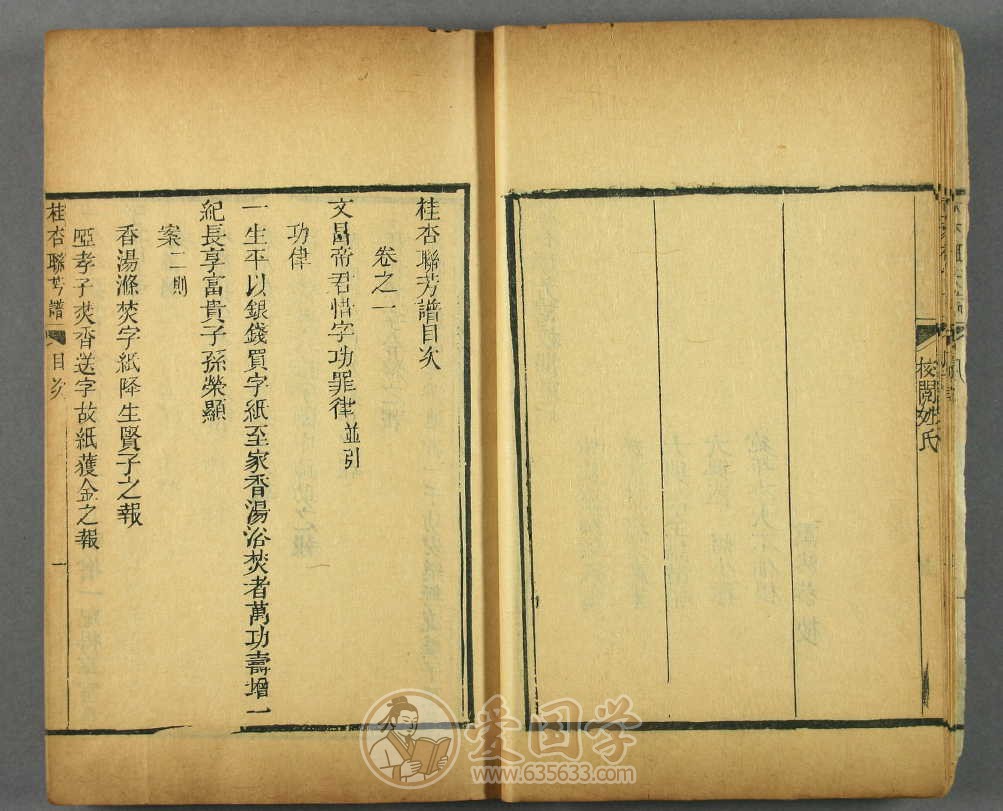 校閱姓氏
桂杏聯芳譜目次
卷之一
文昌帝君惜字功罪律並引
功律
一生平以銀錢買字紙至家香湯浴焚者萬功壽增一
紀長享富貴子孫榮顯
案二則
香湯滌焚字紙降生賢子之報
啞孝子焚香送字故紙獲金之報
桂杏聯芳譜 目次 一
爱国学
www.635633.com